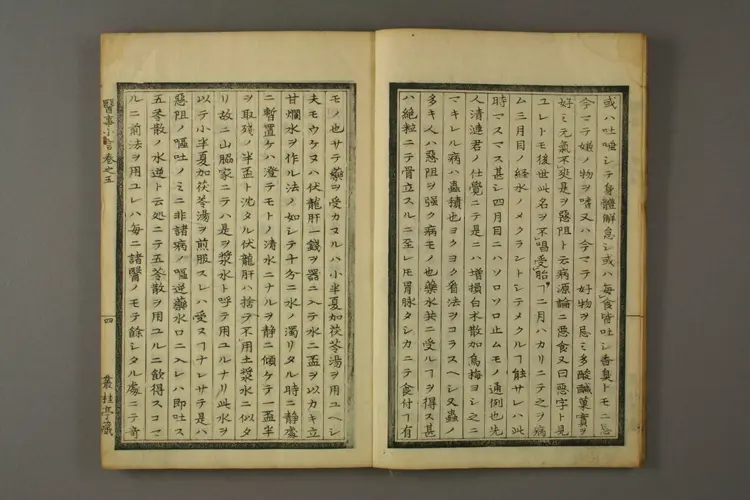 或ハ吐唾シテ身體解怠シ或ハ毎食皆吐シ香臭トモニ忌
今マテ嫌ノ物ヲ嗜又ハ今マテ好物ヲ忌ミ多酸鹹菓實ヲ
好ミ元氣不爽是ヲ惡阻ト云病源論ニ惡食又曰惡字ト見
ユレトモ後世此名ヲ不唱受胎ヿ二月ハカリニテ之ヲ病
ム三月目ノ経水ノメクラントシテメクルヿ能サレハ此
時マスマス甚シ四月目ニハソロソロ止ムモノ通例也先
人清連君ノ仕覺ニテ是ニハ増損白朮散加烏梅ヨシ之ニ
マキレル病ハ蟲積也ヨクヨク看法ヲコラスヘシ又蟲ノ
多キ人ハ惡阻ヲ强ク病モノ也藥水共ニ受ルヿヲ得ス甚
ハ絶粒ニテ骨立スルニ至レ𪜈胃脉タシカニテ食付ハ有
モノ也サテ藥ヲ受カヌルハ小半夏加茯苓湯ヲ用ユヘシ
夫モウケヌハ伏龍肝一錢ヲ器ニ入テ水二盃ヲ以カキ立
甘爛水ヲ作ル法ノ如シテ十分ニ水ノ濁リタル時ニ静處
ニ暫置ケハ澄テモトノ清水ニナルヲ静ニ傾ケテ一盃半
ヲ取残ノ半盃ト沈タル伏龍肝ハ捨テ不用土漿水ニ似タ
リ故ニ山脇家ニテハ是ヲ漿水ト呼テ用ユルナリ此水ヲ
以テ小半夏加茯苓湯ヲ煎服スレハ受スヿナレサテ是ハ
惡阻ノ嘔吐ノミニ非諸病ノ嘔逆藥水口ニ入レハ即吐ス
五苓散ノ水逆ト云処ニテ五苓散ヲ用ユルニ飲得スコマ
ルニ前法ヲ用ユレハ毎ニ諸醫ノモテ餘シタル處ニテ奇
醫事小言巻之五
四
叢桂亭蔵